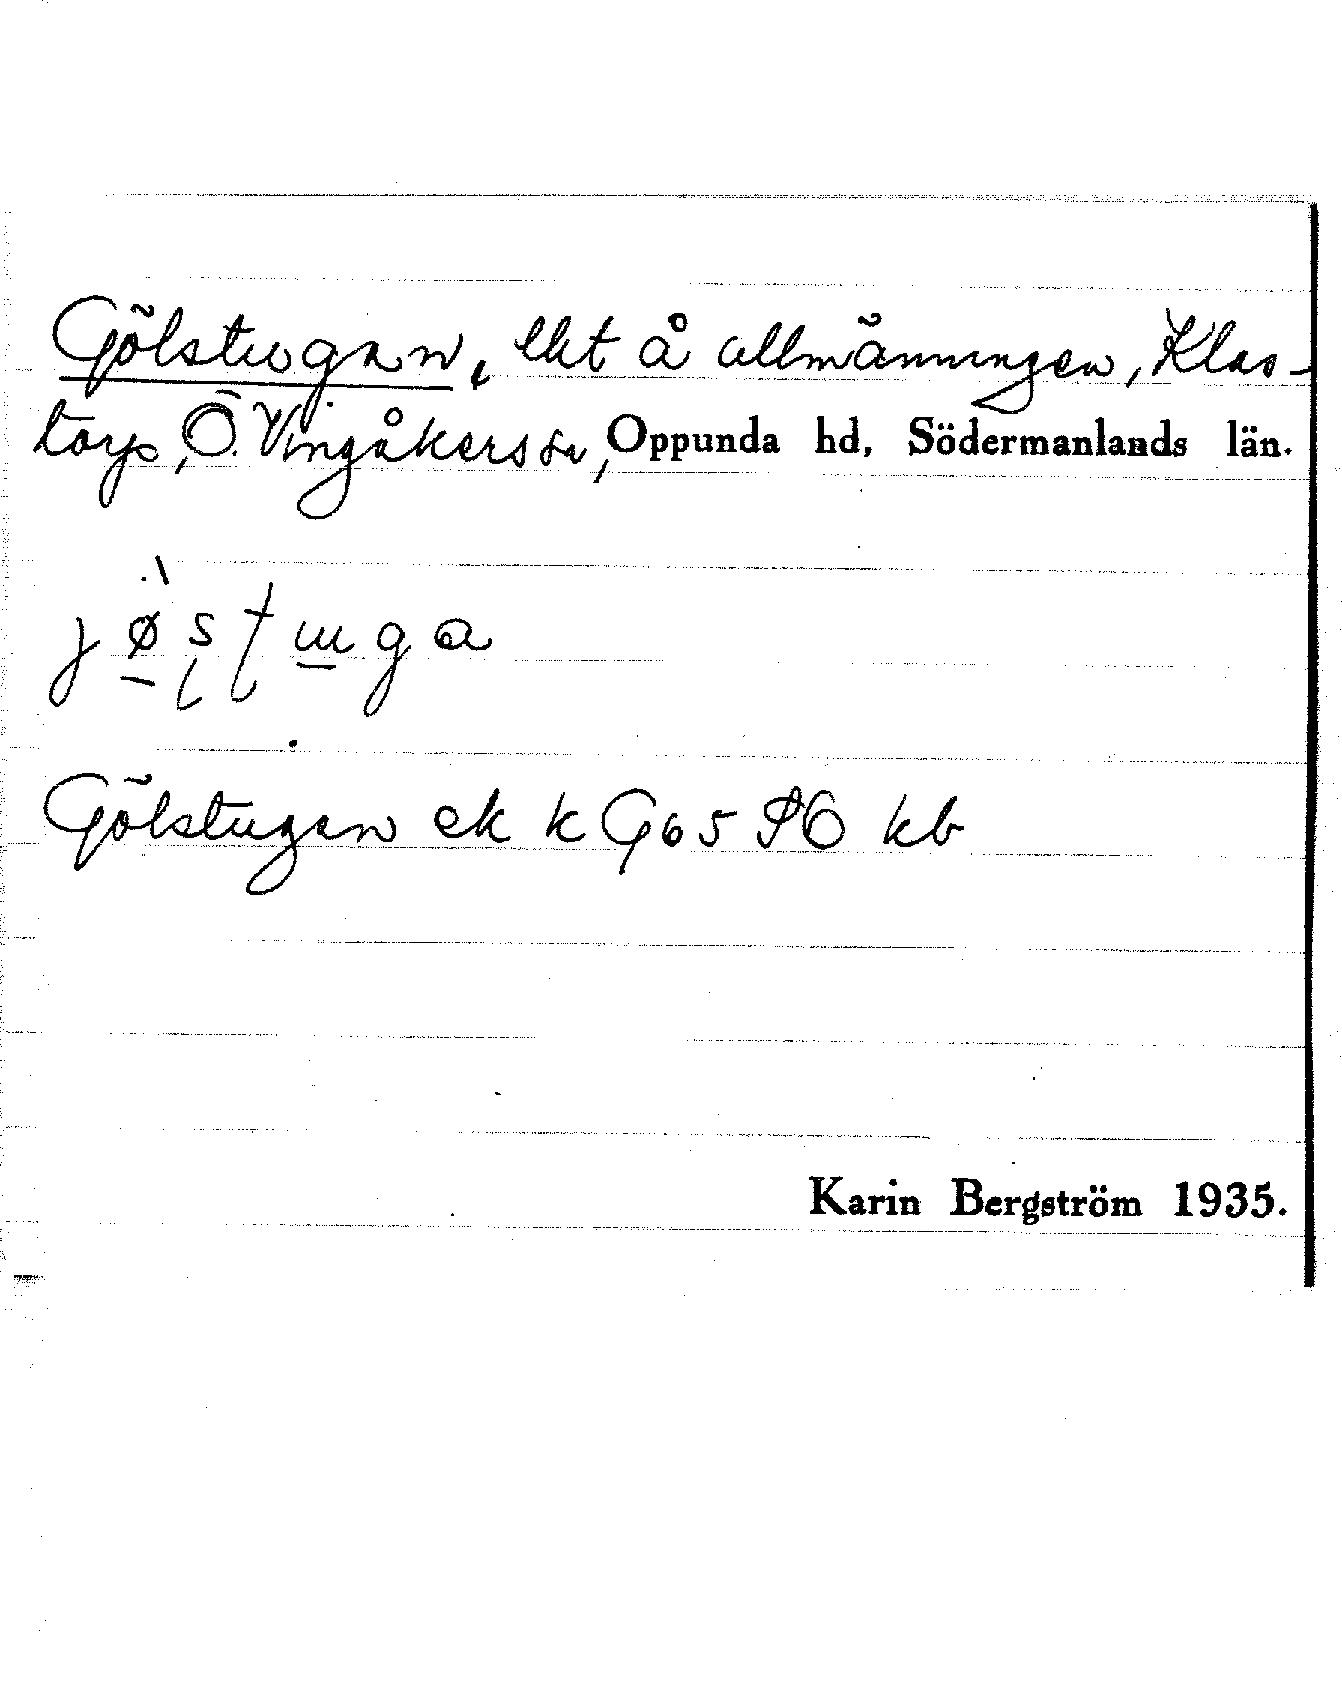 Gölstugan, lht å allmänningen, Klas-
torp, Ö. Vingåkers sn, Oppunda hd, Södermanlands län.
Gölstugan ek k G65 SÖ kb
Karin Bergström 1935.